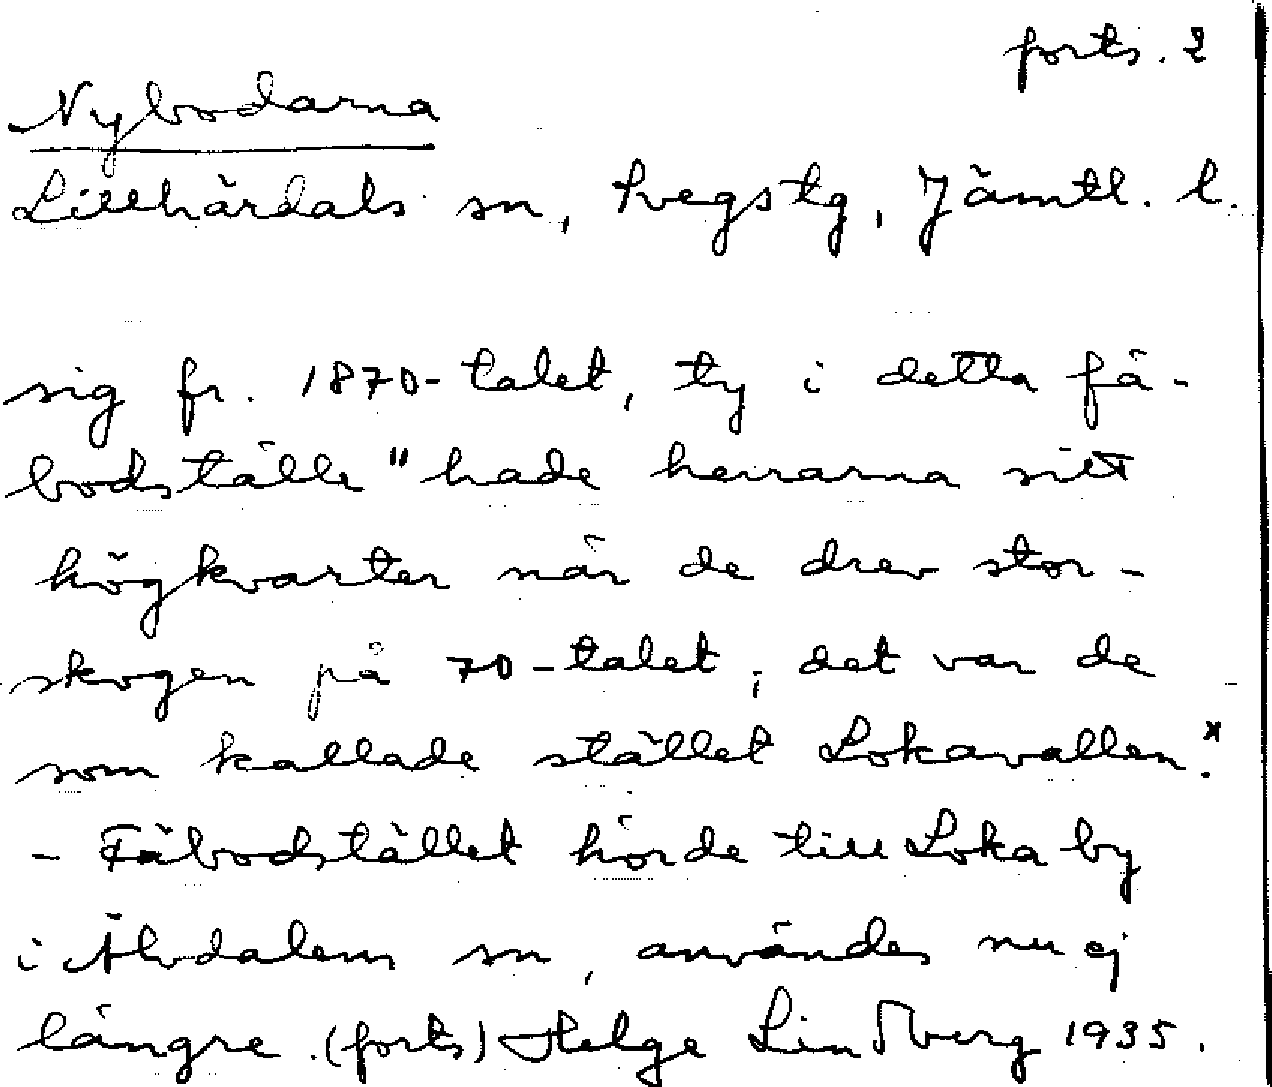 forts. 2
Nybodarna
Lillhärdals sn, Svegs tg, Jämtl. l.
sig fr. 1870-talet, ty i detta fä-
bodställe "hade herrarna sitt
högkvarter när de drev stor-
skogen på 70-talet; det var de
som kallade stället Lokavallen."
- Fäbodstället hörde till Loka by
i Älvdalens sn, användes nu ej
längre. (forts) Helge Lindberg 1935.